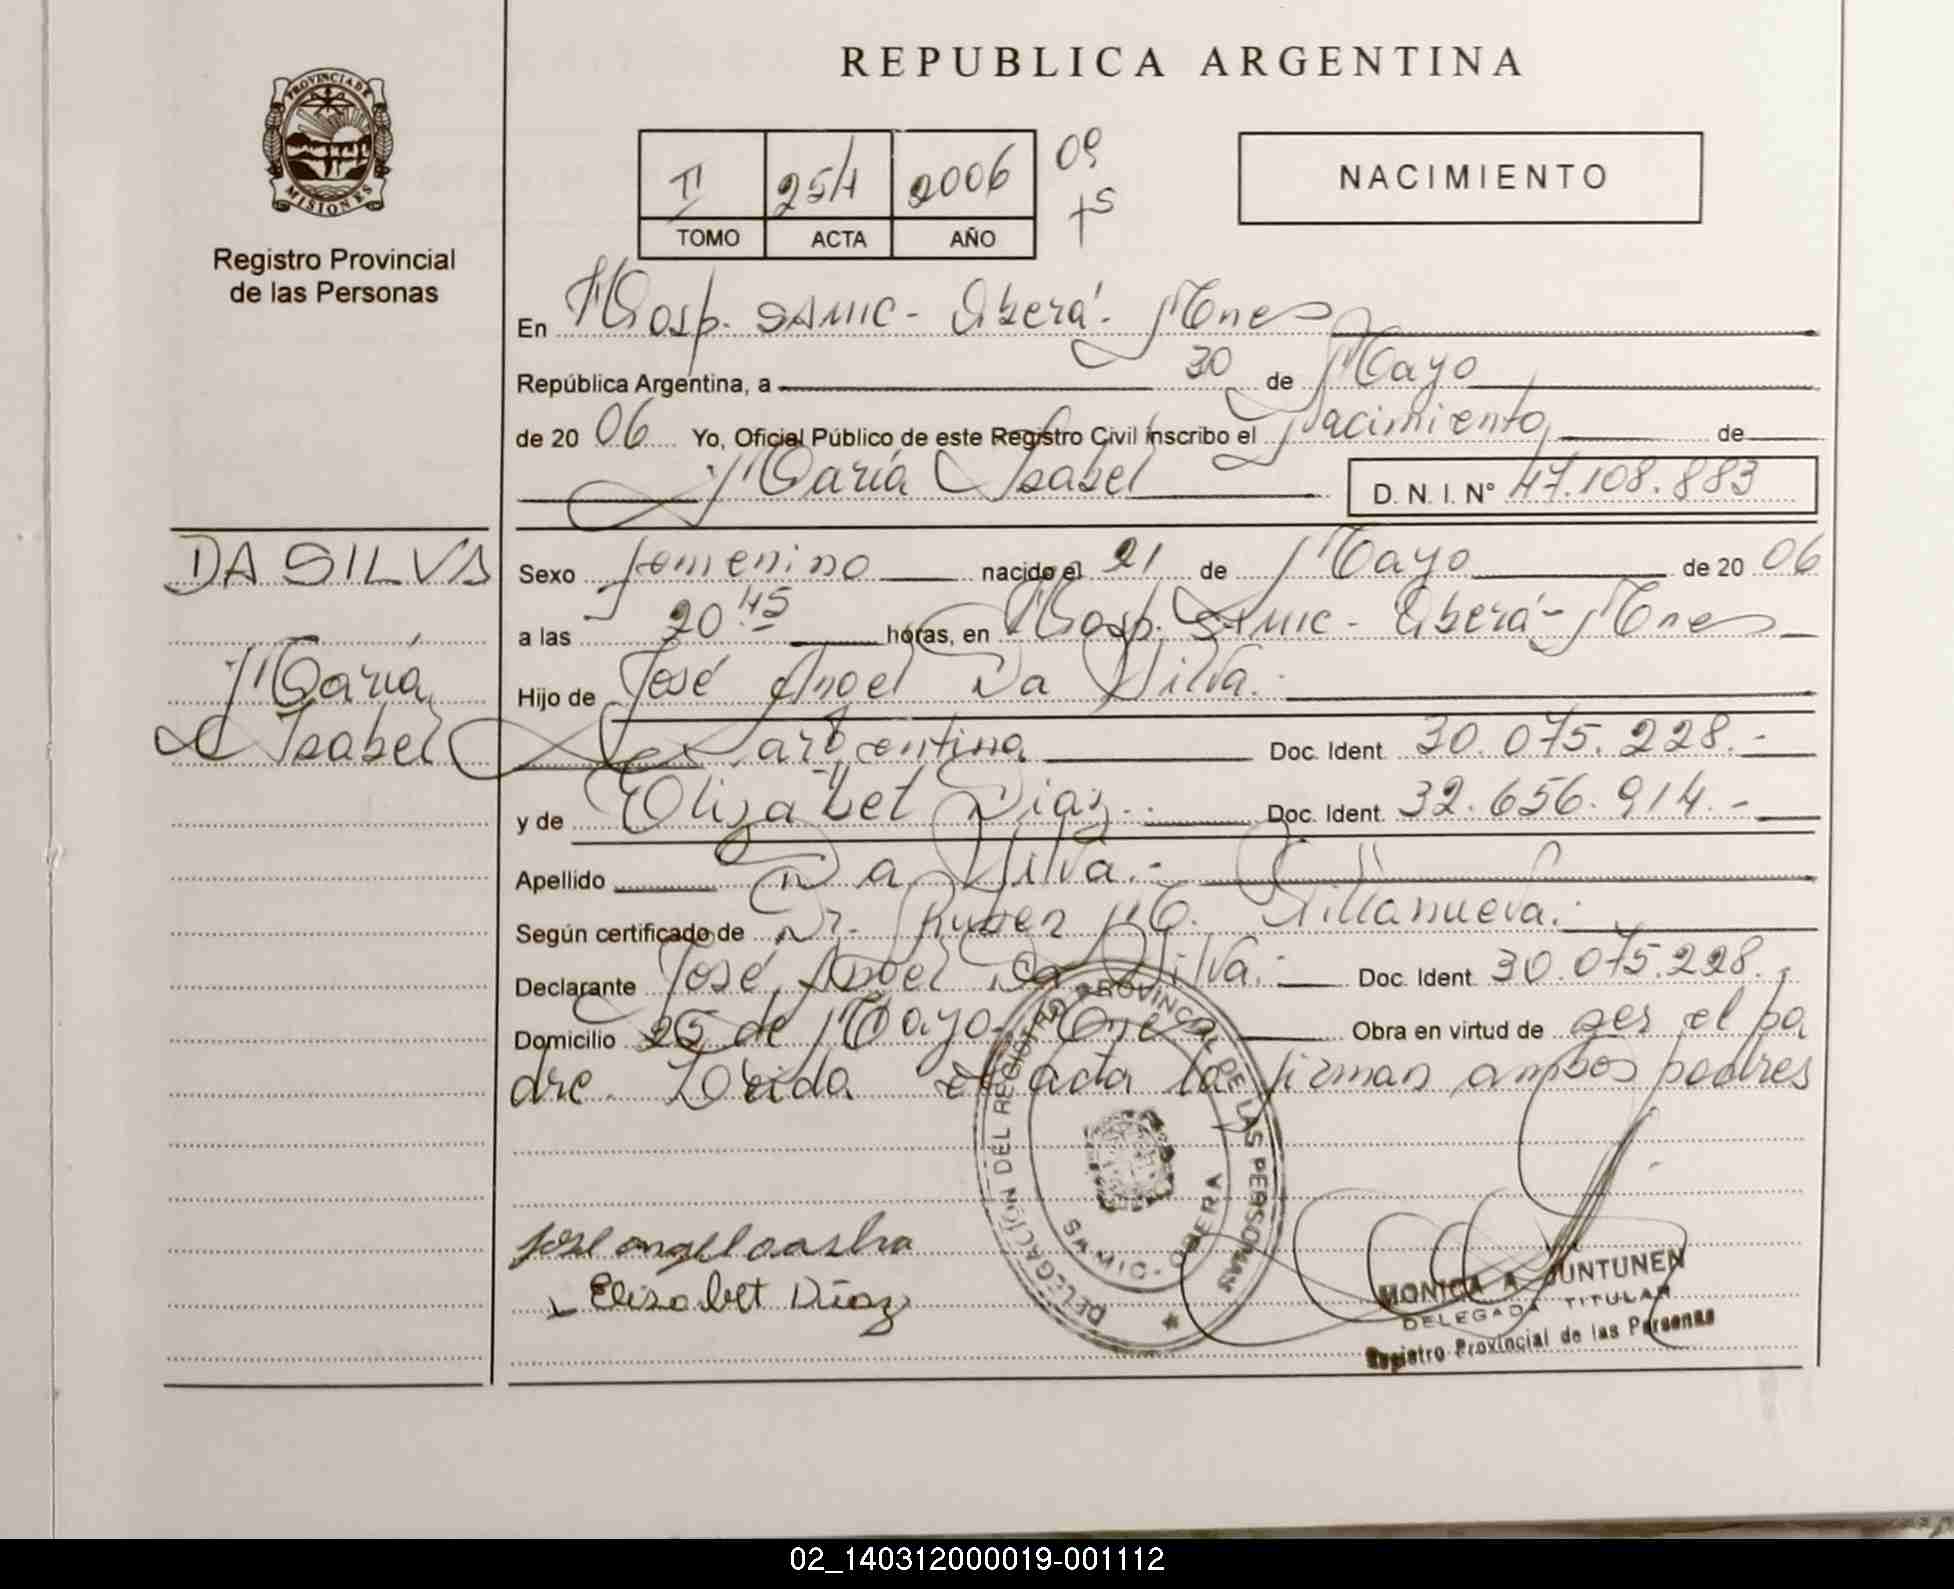 REPUBLICA ARGENTINA
PROVINCIA DE
MISIONES
Registro Provincial
de las Personas
II 254 2006 09
TOMO ACTA AÑO
NACIMIENTO
En Hosp. SAMIC - Oberá - Mnes
República Argentina, a 30 de Mayo
de 2006 Yo, Oficial Público de este Registro Civil inscribo el Nacimiento de
María Isabel D. N. I. N° 47.108.883
DA SILVA
Sexo femenino nacido el 21 de Mayo de 2006
a las 20:45 horas, en Hosp. SAMIC - Oberá - Mnes
María
Hijo de José Angel Da Silva.-
Isabel
argentina Doc. Ident. 30.075.228.-
y de Elizabet Diaz.- Doc. Ident. 32.656.914.-
Apellido Da Silva.-
Según certificado de Dr. Ruben H. Villanueva.-
Declarante José Angel Da Silva.- Doc. Ident. 30.075.228.-
Domicilio 25 de Mayo - Mnes Obra en virtud de ser el pa
dre. Leída el acta la firman ambos padres
DELEGACIÓN DEL REGISTRO PROVINCIAL DE LAS PERSONAS
OBERA
jose angel dasilva
Elizabet Díaz
MONICA A. JUNTUNEN
DELEGADA TITULAR
Registro Provincial de las Personas
02_140312000019-001112